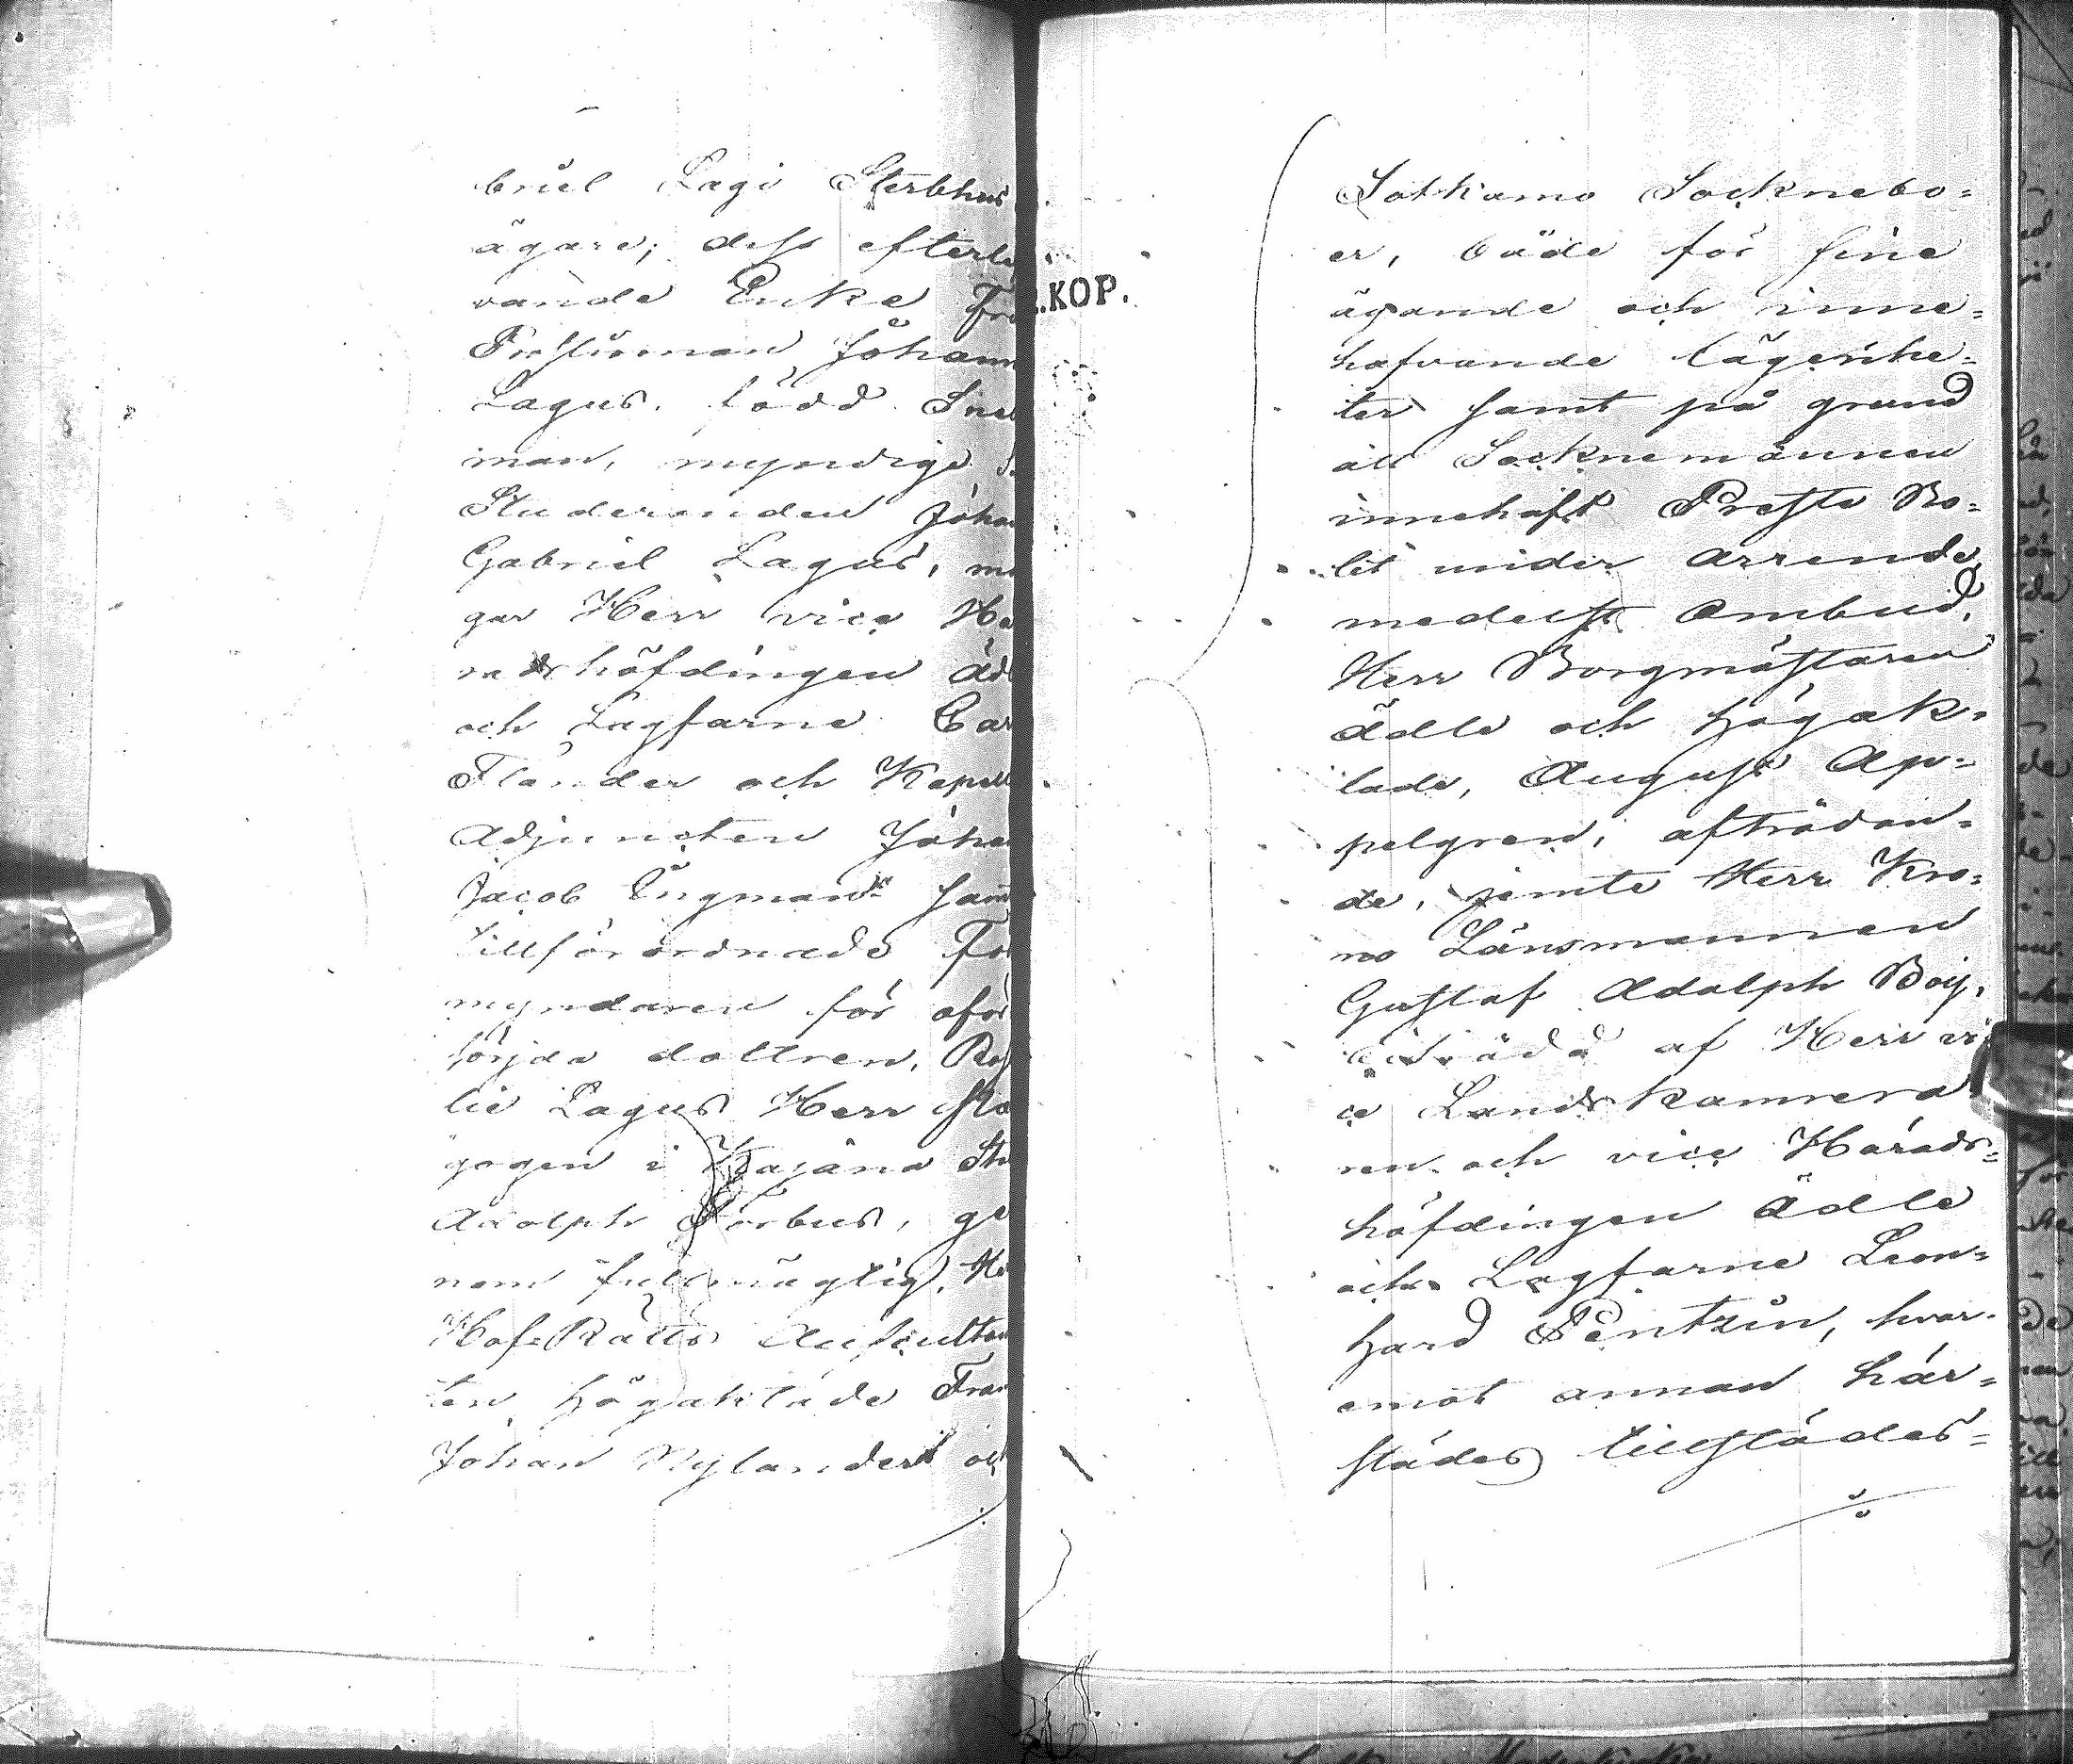 briel Lagi Sterbhus
ägare; dess efterle
vande Enka Fru
Prostinnan Johann
Lagus, född Snel
man, myndige S.
Studeranden Joha
Gabriel Lagus, må
gar Herr vice Hä
radshöfdingen Ädl
och Lagfarne Car
Flander och Kapell
Adjuncten Joha
Jacob Engman samt
tillförordnade För
myndaren för oför
sörjda dottren, Ros
lie Lagus Herr
gogen i Kajana St
Adolph Forbus, ge
nom fullmägtig, He
Hofs Rätts Auscultan
ten högaktade Fran
Johan Nylander och
.KOP.
Sotkamo Socknebo=
er, både för sine
ägande och inne=
hafvande lägenhe=
ter samt på grund
att Socknemännen
innehaft Preste Bo=
let under arrende,
medelst Ombud,
Herr Borgmästaren
ädle och högak=
tade, August Ap=
pelgren, afträdan=
de, jemte Herr Kro=
no Länsmannen
Gustaf Adolph Boij,
biträdd af Herr vi
ce Landskamrera
ren och vice Härads=
höfdingen Ädle
och Lagfarne Leon=
hard Pentzin, hvar
emot annan här=
städes tillstädes=